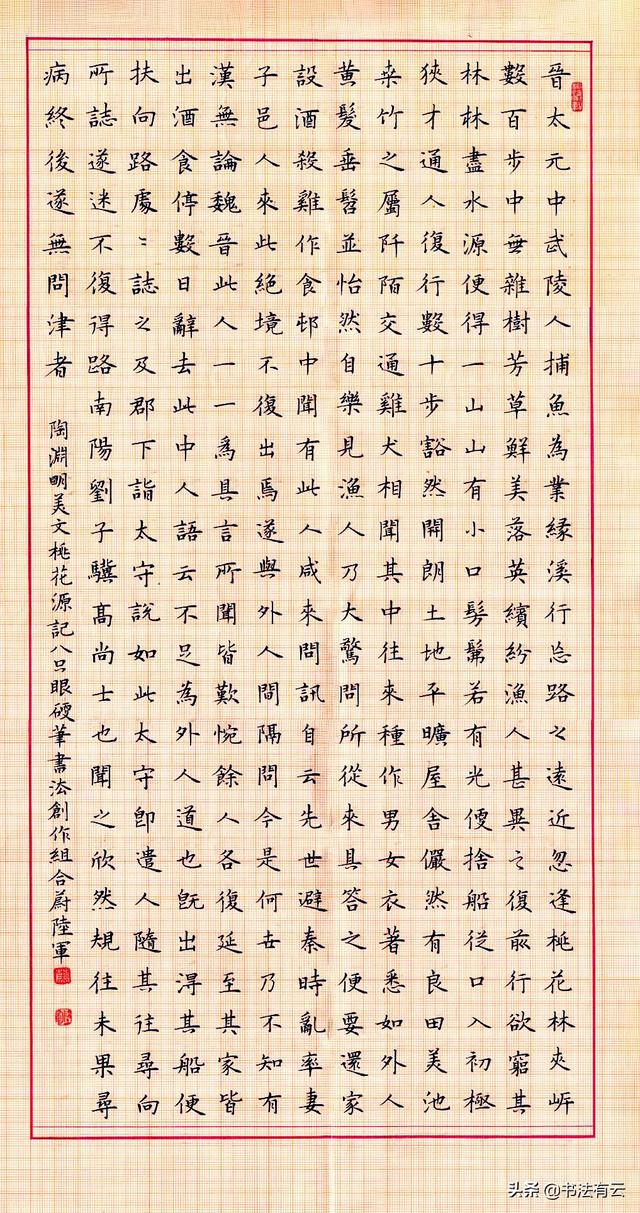 晉太元中武陵人捕魚為業緣溪行忘路之遠近忽逢桃花林夾岸
數百步中無雜樹芳草鮮美落英繽紛漁人甚異之復前行欲窮其
林林盡水源便得一山山有小口髣髴若有光便捨船從口入初極
狹才通人復行數十步豁然開朗土地平曠屋舍儼然有良田美池
桑竹之屬阡陌交通雞犬相聞其中往來種作男女衣著悉如外人
黃髮垂髫並怡然自樂見漁人乃大驚問所從來具答之便要還家
設酒殺雞作食邨中聞有此人咸來問訊自云先世避秦時亂率妻
子邑人來此絕境不復出焉遂與外人間隔問今是何世乃不知有
漢無論魏晉此人一一為具言所聞皆歎惋餘人各復延至其家皆
出酒食停數日辭去此中人語云不足為外人道也既出得其船便
扶向路處〻誌之及郡下詣太守說如此太守即遣人隨其往尋向
所誌遂迷不復得路南陽劉子驥高尚士也聞之欣然規往未果尋
病終後遂無問津者 陶淵明美文桃花源記八只眼硬筆書法創作組合蔚陸軍
头条 @书法有云